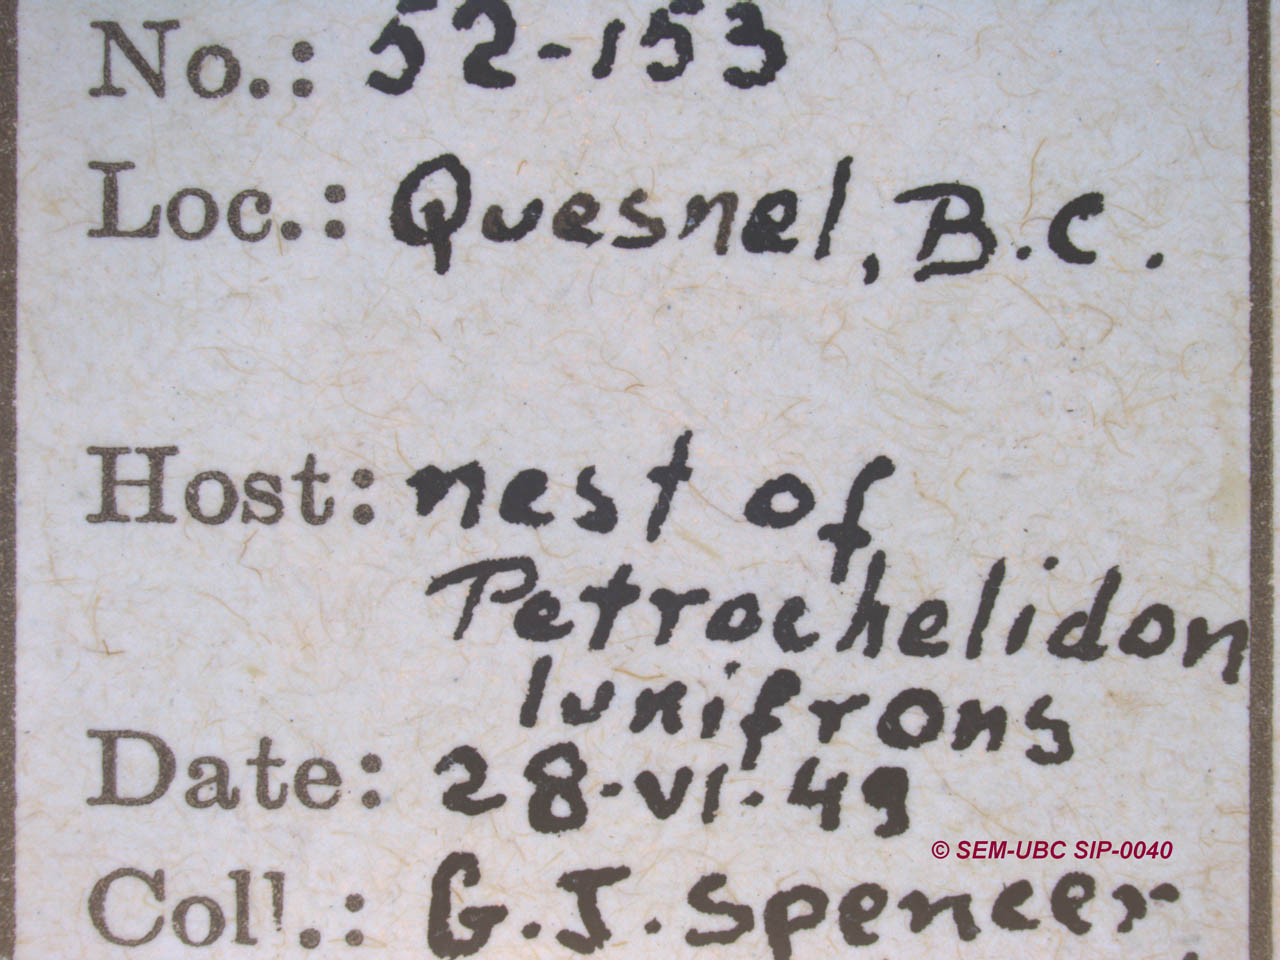 No.: 52-153
Loc.: Quesnel, B.C.
Host: nest of
Petrochelidon
lunifrons
Date: 28-VI-49
© SEM-UBC SIP-0040
Coll.: G.J. Spencer